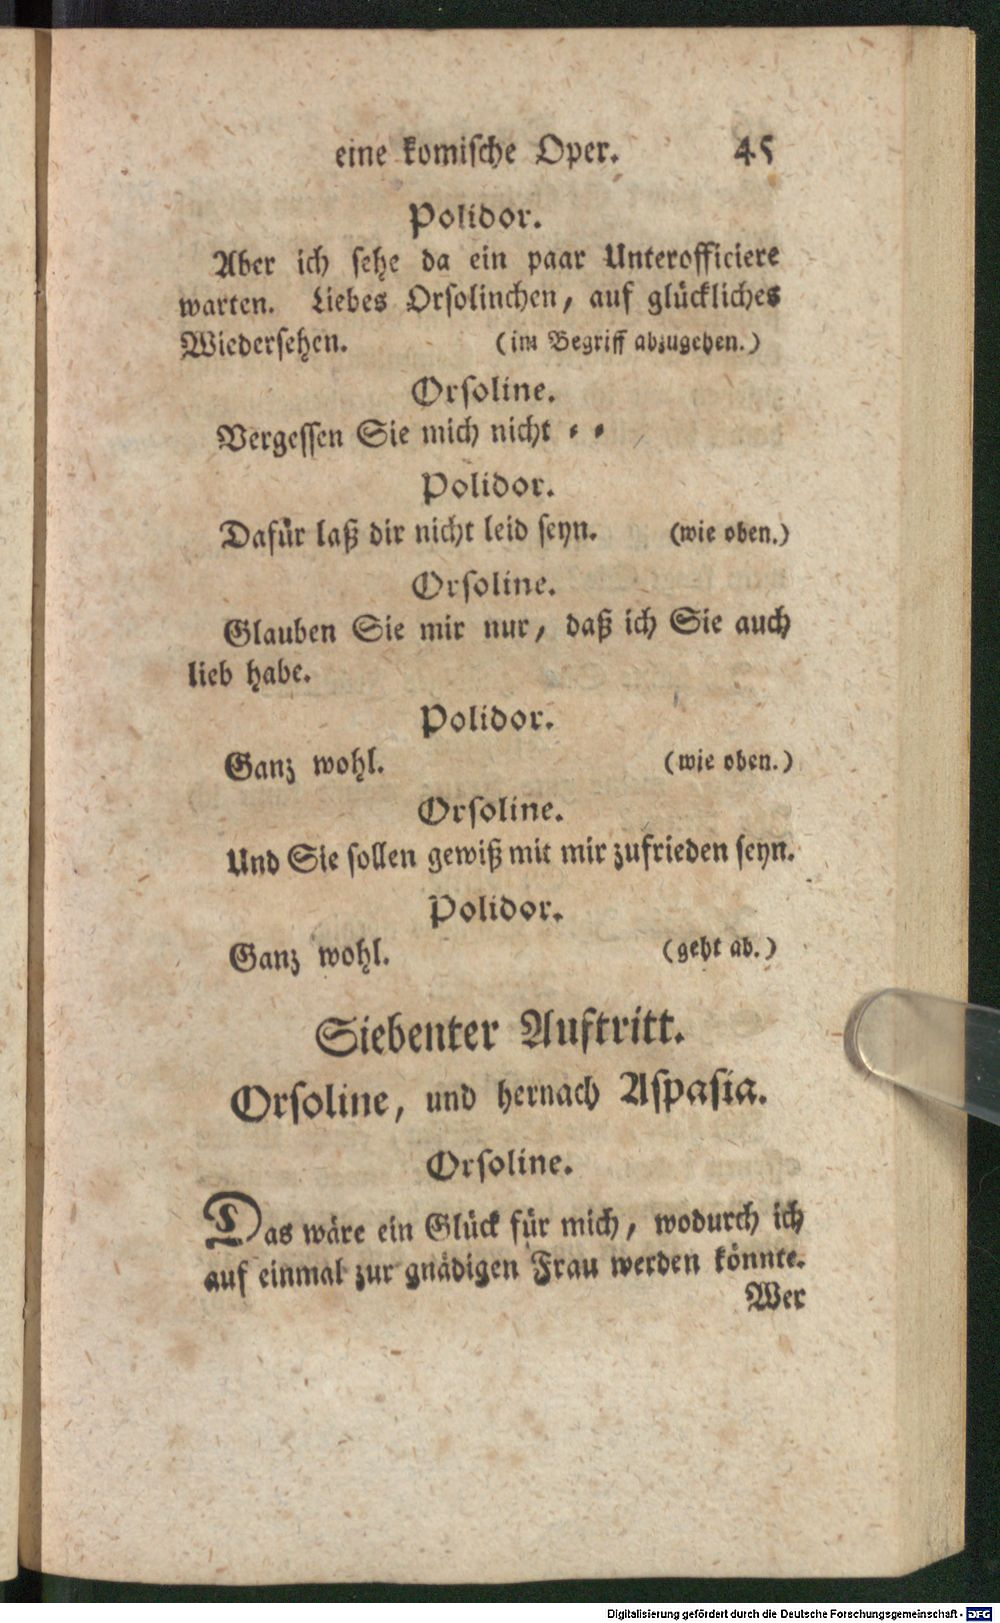 eine komische Oper. 45
Polidor.
Aber ich sehe da ein paar Unterofficiere
warten. Liebes Orsolinchen, auf glückliches
Wiedersehen. (im Begriff abzugehen.)
Orsoline.
Vergessen Sie mich nicht - -
Polidor.
Dafür laß dir nicht leid seyn. (wie oben.)
Orsoline.
Glauben Sie mir nur, daß ich Sie auch
lieb habe.
Polidor.
Ganz wohl. (wie oben.)
Orsoline.
Und Sie sollen gewiß mit mir zufrieden seyn.
Polidor.
Ganz wohl. (geht ab.)
Siebenter Auftritt.
Orsoline, und hernach Aspasia.
Orsoline.
Das wäre ein Glück für mich, wodurch ich
auf einmal zur gnädigen Frau werden könnte.
Wer
Digitalisierung gefördert durch die Deutsche Forschungsgemeinschaft - DFG